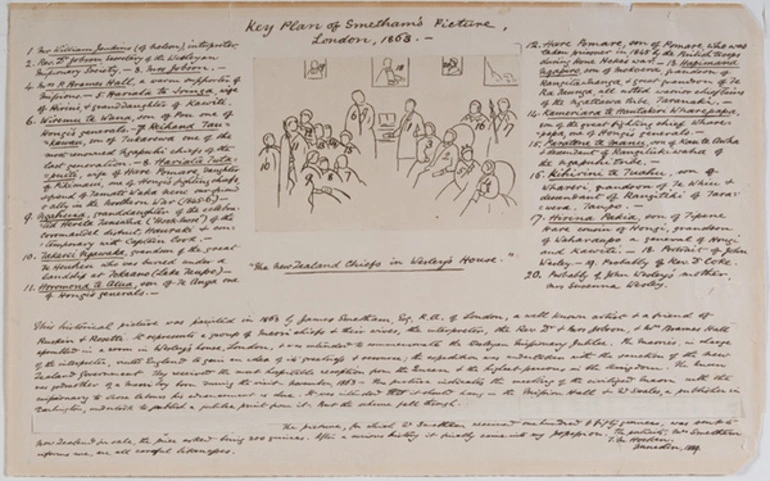 Key Plan of Smetham's Picture,
London, 1863. —
1. Mr William Jenkins (of Nelson), interpreter,
2. Rev. Dr Jobson, Secretary of the Wesleyan
Missionary Society. — 3. Mrs Jobson. —
4. Mrs P. Brames Hall, a warm supporter of
missions. — 5. Hariata te Iringa, wife
of Hirini, & granddaughter of Kawiti.
6. Wiremu te Wana, son of Pou one of
Hongi's generals. — 7. Reihana Tau-
kawau, son of Tukarewa one of the
most renowned Ngapuhi chiefs of the
last generation. — 8. Hariata Tuta-
puiti, wife of Hare Pomare, daughter
of Pikimaui, one of Hongi's fighting chiefs,
& friend of Tamati Waka Nene our friend
& ally in the Northern War (1845-6) —
9. Ngahuia, granddaughter of the celebra-
ted Horeta Taniwha ("Hook-nose") of the
Coromandel district, Hauraki & con-
temporary with Captain Cook. —
10. Takerei Ngawaka, grandson of the great
Te Heuheu who was buried under a
landslip at Tokaano (Lake Taupo) —
11. Horomona te Atua, son of Te Anga one
of Hongi's generals. —
12. Hare Pomare, son of Pomare, who was
taken prisoner in 1845 by the British troops
during Hone Heke's war. — 13. Hapimana
Ngapiko, son of
Rangitahuanga & great grandson of Te
Ra Taunga, all noted warrior chieftains
of the Ngatiawa tribe, Taranaki. —
14. Kamariera te Hautakiri Wharepapa,
son of the great fighting chief Whare-
papa, one of Hongi's generals. —
15. Paratene te Manu, son of Kau te Awha
& descendant of Rangituki waha of
the Ngapuhi tribe. —
16. Kihirini te Tuahu, son of
Whareri, grandson of Te Whiu &
descendant of Rangitiki of Tara-
wera, Taupo. —
17. Hirini Pakia, son of Tipene
Hare cousin of Hongi, grandson
of Waharaupo a general of Hongi
and Kawiti. — 18. Portrait of John
Wesley — 19. Probably of Rev. Dr Coke.
20. Probably of John Wesley's mother,
Mrs Susanna Wesley.
18
20
10
16
17
"The New Zealand Chiefs in Wesley's House."
This historical picture was painted in 1863 by James Smetham, Esq. R.A. of London, a well known artist & a friend of
Ruskin & Rosetti. It represents a group of Maori chiefs & their wives, the interpreter, the Rev. Dr & Mrs Jobson, & Mrs Brames Hall
assembled in a room in Wesley's house, London, & was intended to commemorate the Wesleyan Missionary Jubilee. The Maoris, in charge
of the interpreter, visited England to gain an idea of its greatness & resources; the expedition was undertaken with the sanction of the New
Zealand Government. They received the most hospitable reception from the Queen & the highest persons in the kingdom. The Queen
was godmother of a Maori boy born during the visit — November, 1863 — This picture indicates the meeting of the civilized Maori with the
missionary to whose labours his advancement is due. It was intended that it should hang in the Mission Hall & Mr Swales, a publisher in
Darlington, undertook to publish a jubilee print from it. But the scheme fell through. —
The picture, for which Mr Smetham received one hundred & fifty guineas, was sent to
New Zealand for sale, the price asked being 200 guineas. After a curious history it finally came into my possession. The portraits, Mrs Smetham
informs me, are all careful likenesses.
T. M. Hocken.
Dunedin,